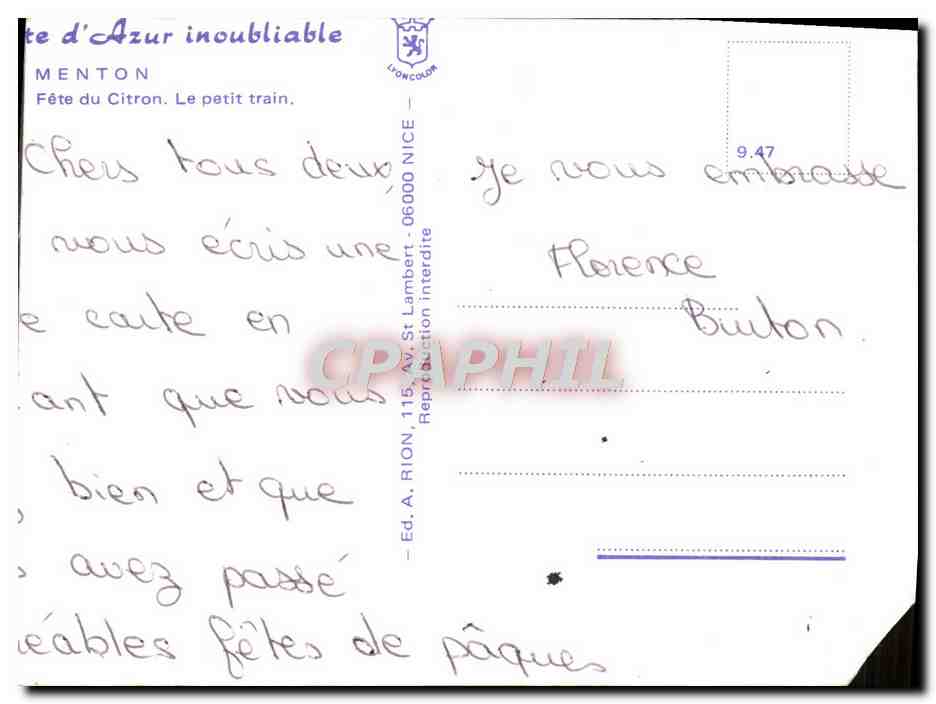 te d'Azur inoubliable
MENTON
Fête du Citron. Le petit train.
LYONCOLOR
9.47
— Ed. A. RION, 115, Av. St Lambert - 06000 NICE —
Reproduction interdite
Chers tous deux
vous écris une
e carte en
ant que vous
bien et que
s avez passé
éables fêtes de pâques
Je vous embrasse
Florence
Burton
CPAPHIL